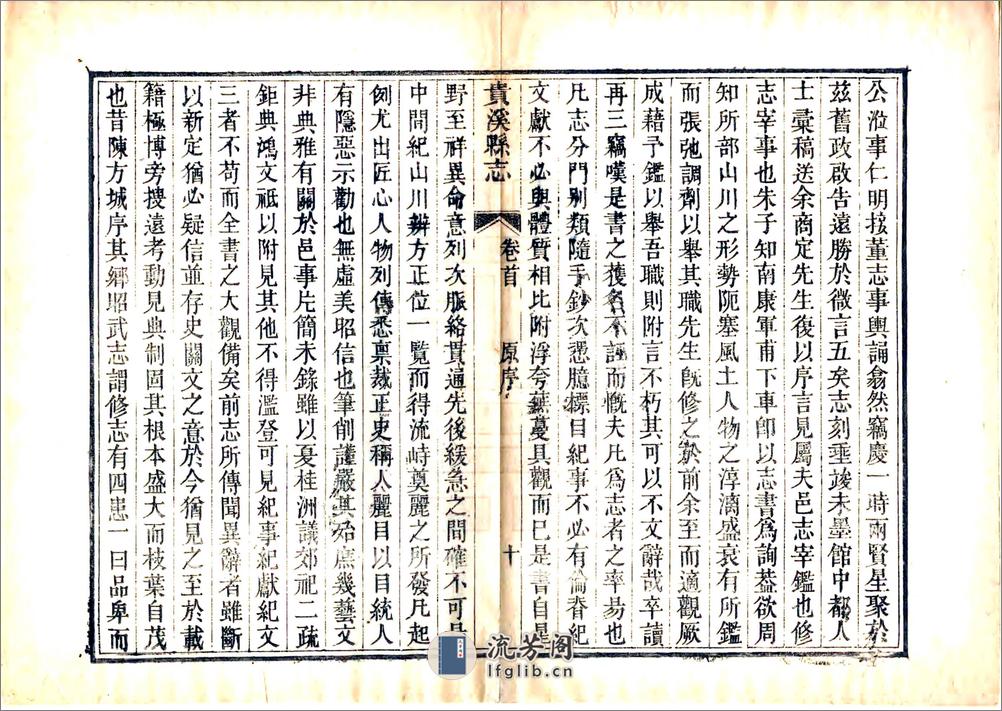 公涖事仁明按董志事輿誦翕然竊慶一時兩賢星聚於
茲舊政啟告遠勝於微言五矣志刻垂竣未墨館中都人
士彙稿送余商定先生復以序言見屬夫邑志宰鑑也修
志宰事也朱子知南康軍甫下車卽以志書爲詢葢欲周
知所部山川之形勢阨塞風土人物之淳漓盛衰有所鑑
而張弛調劑以舉其職先生旣修之於前余至而適觀厥
成藉予鑑以舉吾職則附言不朽其可以不文辭哉卒讀
再三竊嘆是書之獲名不誣而慨夫凡爲志者之率易也
凡志分門別類隨手鈔次悉臆標目紀事不必有倫脊紀
文獻不必與體質相比附浮夸蕪蔓具觀而已是書自星
貴溪縣志
卷首
原序
十
野至祥異命意列次脈絡貫通先後緩急之間確不可易
中間紀山川辨方正位一覽而得流峙奠麗之所發凡起
例尤出匠心人物列傳悉稟裁正史稱人麗目以目統人
有隱惡示勸也無虛美昭信也筆削謹嚴其殆庶幾藝文
非典雅有關於邑事片簡未錄雖以夏桂洲議郊祀二疏
鉅典鴻文祗以附見其他不得濫登可見紀事紀獻紀文
三者不苟而全書之大觀備矣前志所傳聞異辭者雖斷
以新定猶必疑信並存史闕文之意於今猶見之至於載
籍極博旁搜遠考動見典制固其根本盛大而枝葉自茂
也昔陳方城序其鄉昭武志謂修志有四患一曰品卑而
流芳阁
lfglib.cn